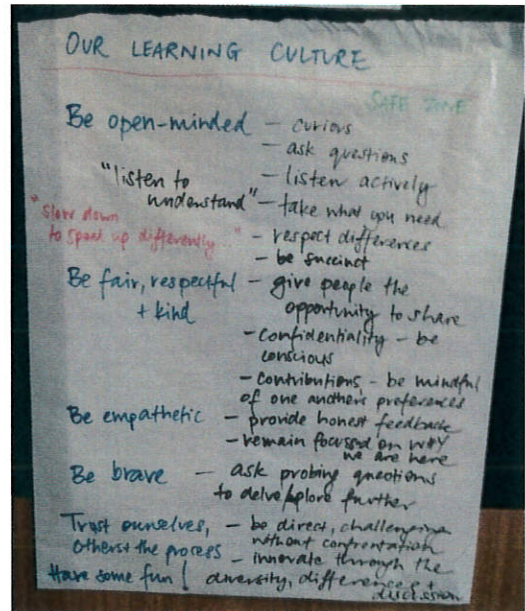 OUR LEARNING CULTURE
SAFE ZONE
Be open-minded - curious
- ask questions
"listen to understand" - listen actively
- take what you need
"slow down
to speak up differently..." - respect differences
- be succinct
Be fair, respectful + kind - give people the
opportunity to share
- confidentiality - be
conscious
- contributions - be mindful
of one anothers preferences
Be empathetic - provide honest feedback
- remain focussed on WHY
we are here
Be brave - ask probing questions
to delve/explore further
Trust ourselves, - be direct, challenging
others + the process without confrontation
- innovate through the
Have some fun! diversity, differences +
discussion